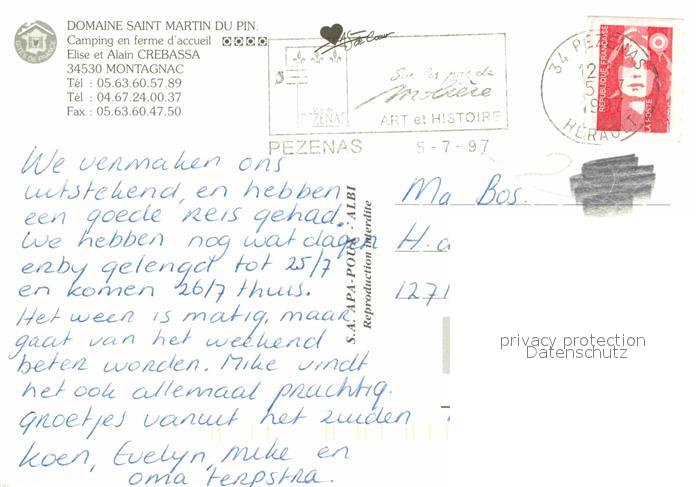 DOMAINE SAINT MARTIN DU PIN.
Camping en ferme d'accueil
Elise et Alain CREBASSA
34530 MONTAGNAC
Tél : 05.63.60.57.89
Tél : 04.67.24.00.37
Fax : 05.63.60.47.50
PEZENAS
Sur les pas de
Molière
ART et HISTOIRE
PEZENAS 5-7-97
34 PEZENAS
HERAULT
REPUBLIQUE FRANÇAISE
LA POSTE
We vermaken ons
uitstekend, en hebben
een goede reis gehad.
We hebben nog wat dagen
erby gelengd tot 25/7
en komen 26/7 thuis.
Het weer is matig, maar
gaat van het weekend
beter worden. Mike vindt
het ook allemaal prachtig.
groetjes vanuit het zuiden
Koen, Evelyn, Mike en
oma Terpstra.
S.A. APA-POUX - ALBI
Reproduction interdite
Ma Bos.
H.a
1271
privacy protection
Datenschutz